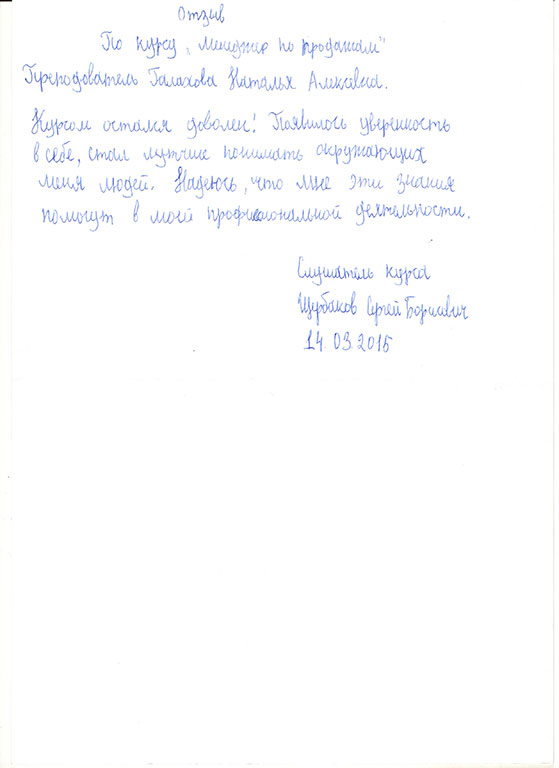 Отзыв
По курсу „Менджер по продажам"
Преподователь Галахова Наталья Алексевна.
Курсом остался доволен! Появилось уверенность
в себе, стал лутчше понимать окружающих
меня людей. Надеюсь, что мне эти знания
помогут в моей професиональной деятельности.
Слушатель курса
Щурбаков Сергей Борисвич
14.03.2015